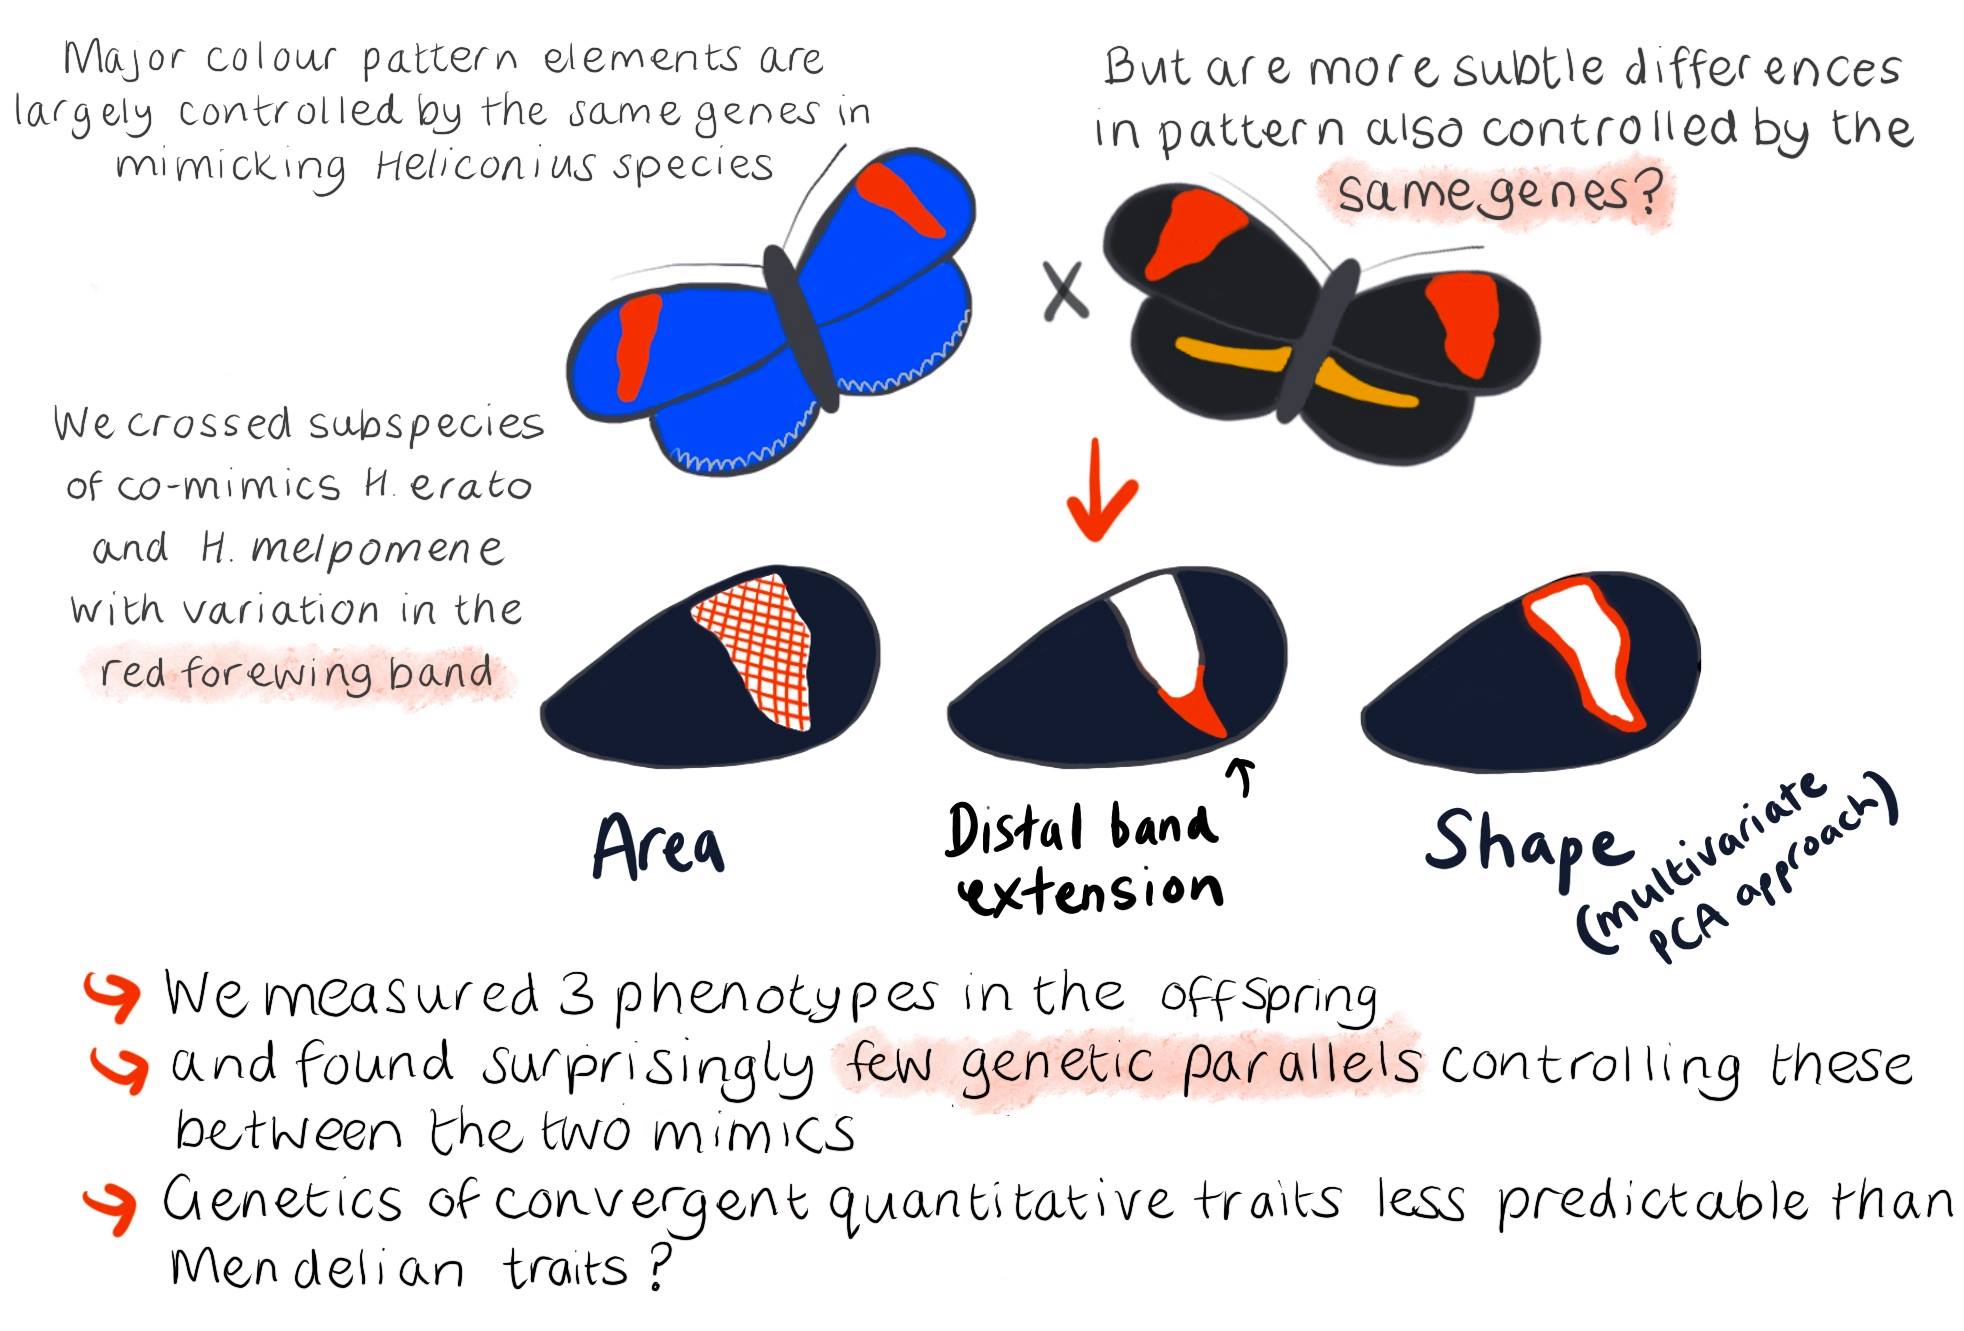 Major colour pattern elements are
largely controlled by the same genes in
mimicking Heliconius species
But are more subtle differences
in pattern also controlled by the
same genes?
X
We crossed subspecies
of co-mimics H. erato
and H. melpomene
with variation in the
red forewing band
Area
Distal band
extension
Shape
(multivariate
PCA approach)
We measured 3 phenotypes in the offspring
and found surprisingly few genetic parallels controlling these
between the two mimics
Genetics of convergent quantitative traits less predictable than
Mendelian traits?